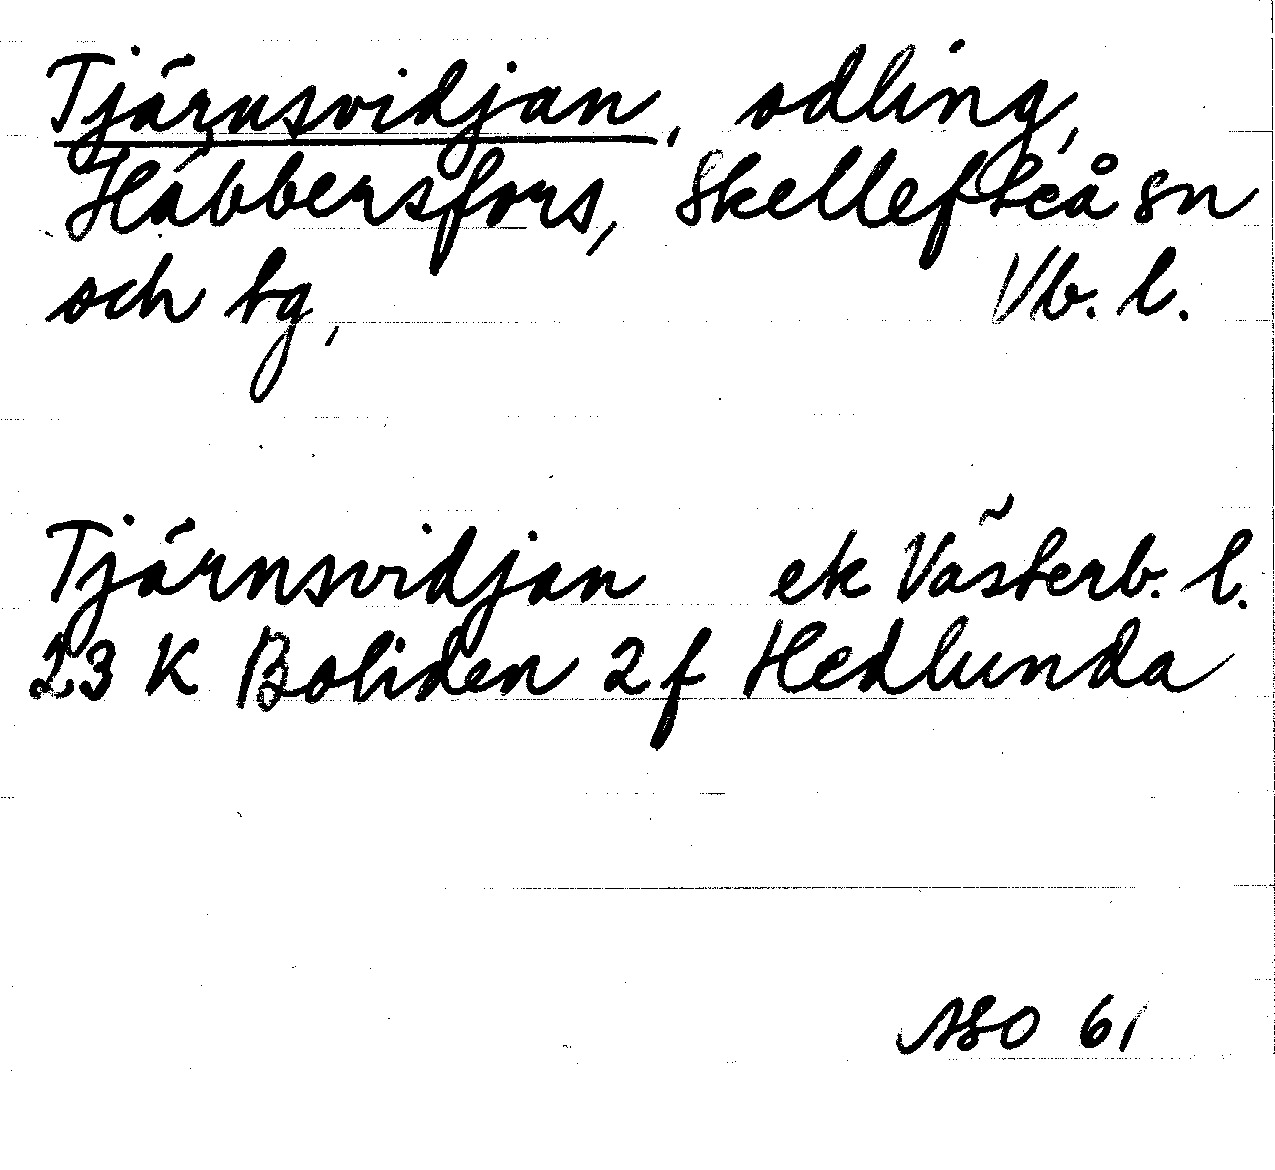 Tjärnsvidjan, odling,
Häbbersfors, Skellefteå sn
och tg, Vb. l.
Tjärnsvidjan ek Västerb. l.
23 K Boliden 2f Hedlunda
ASO 61